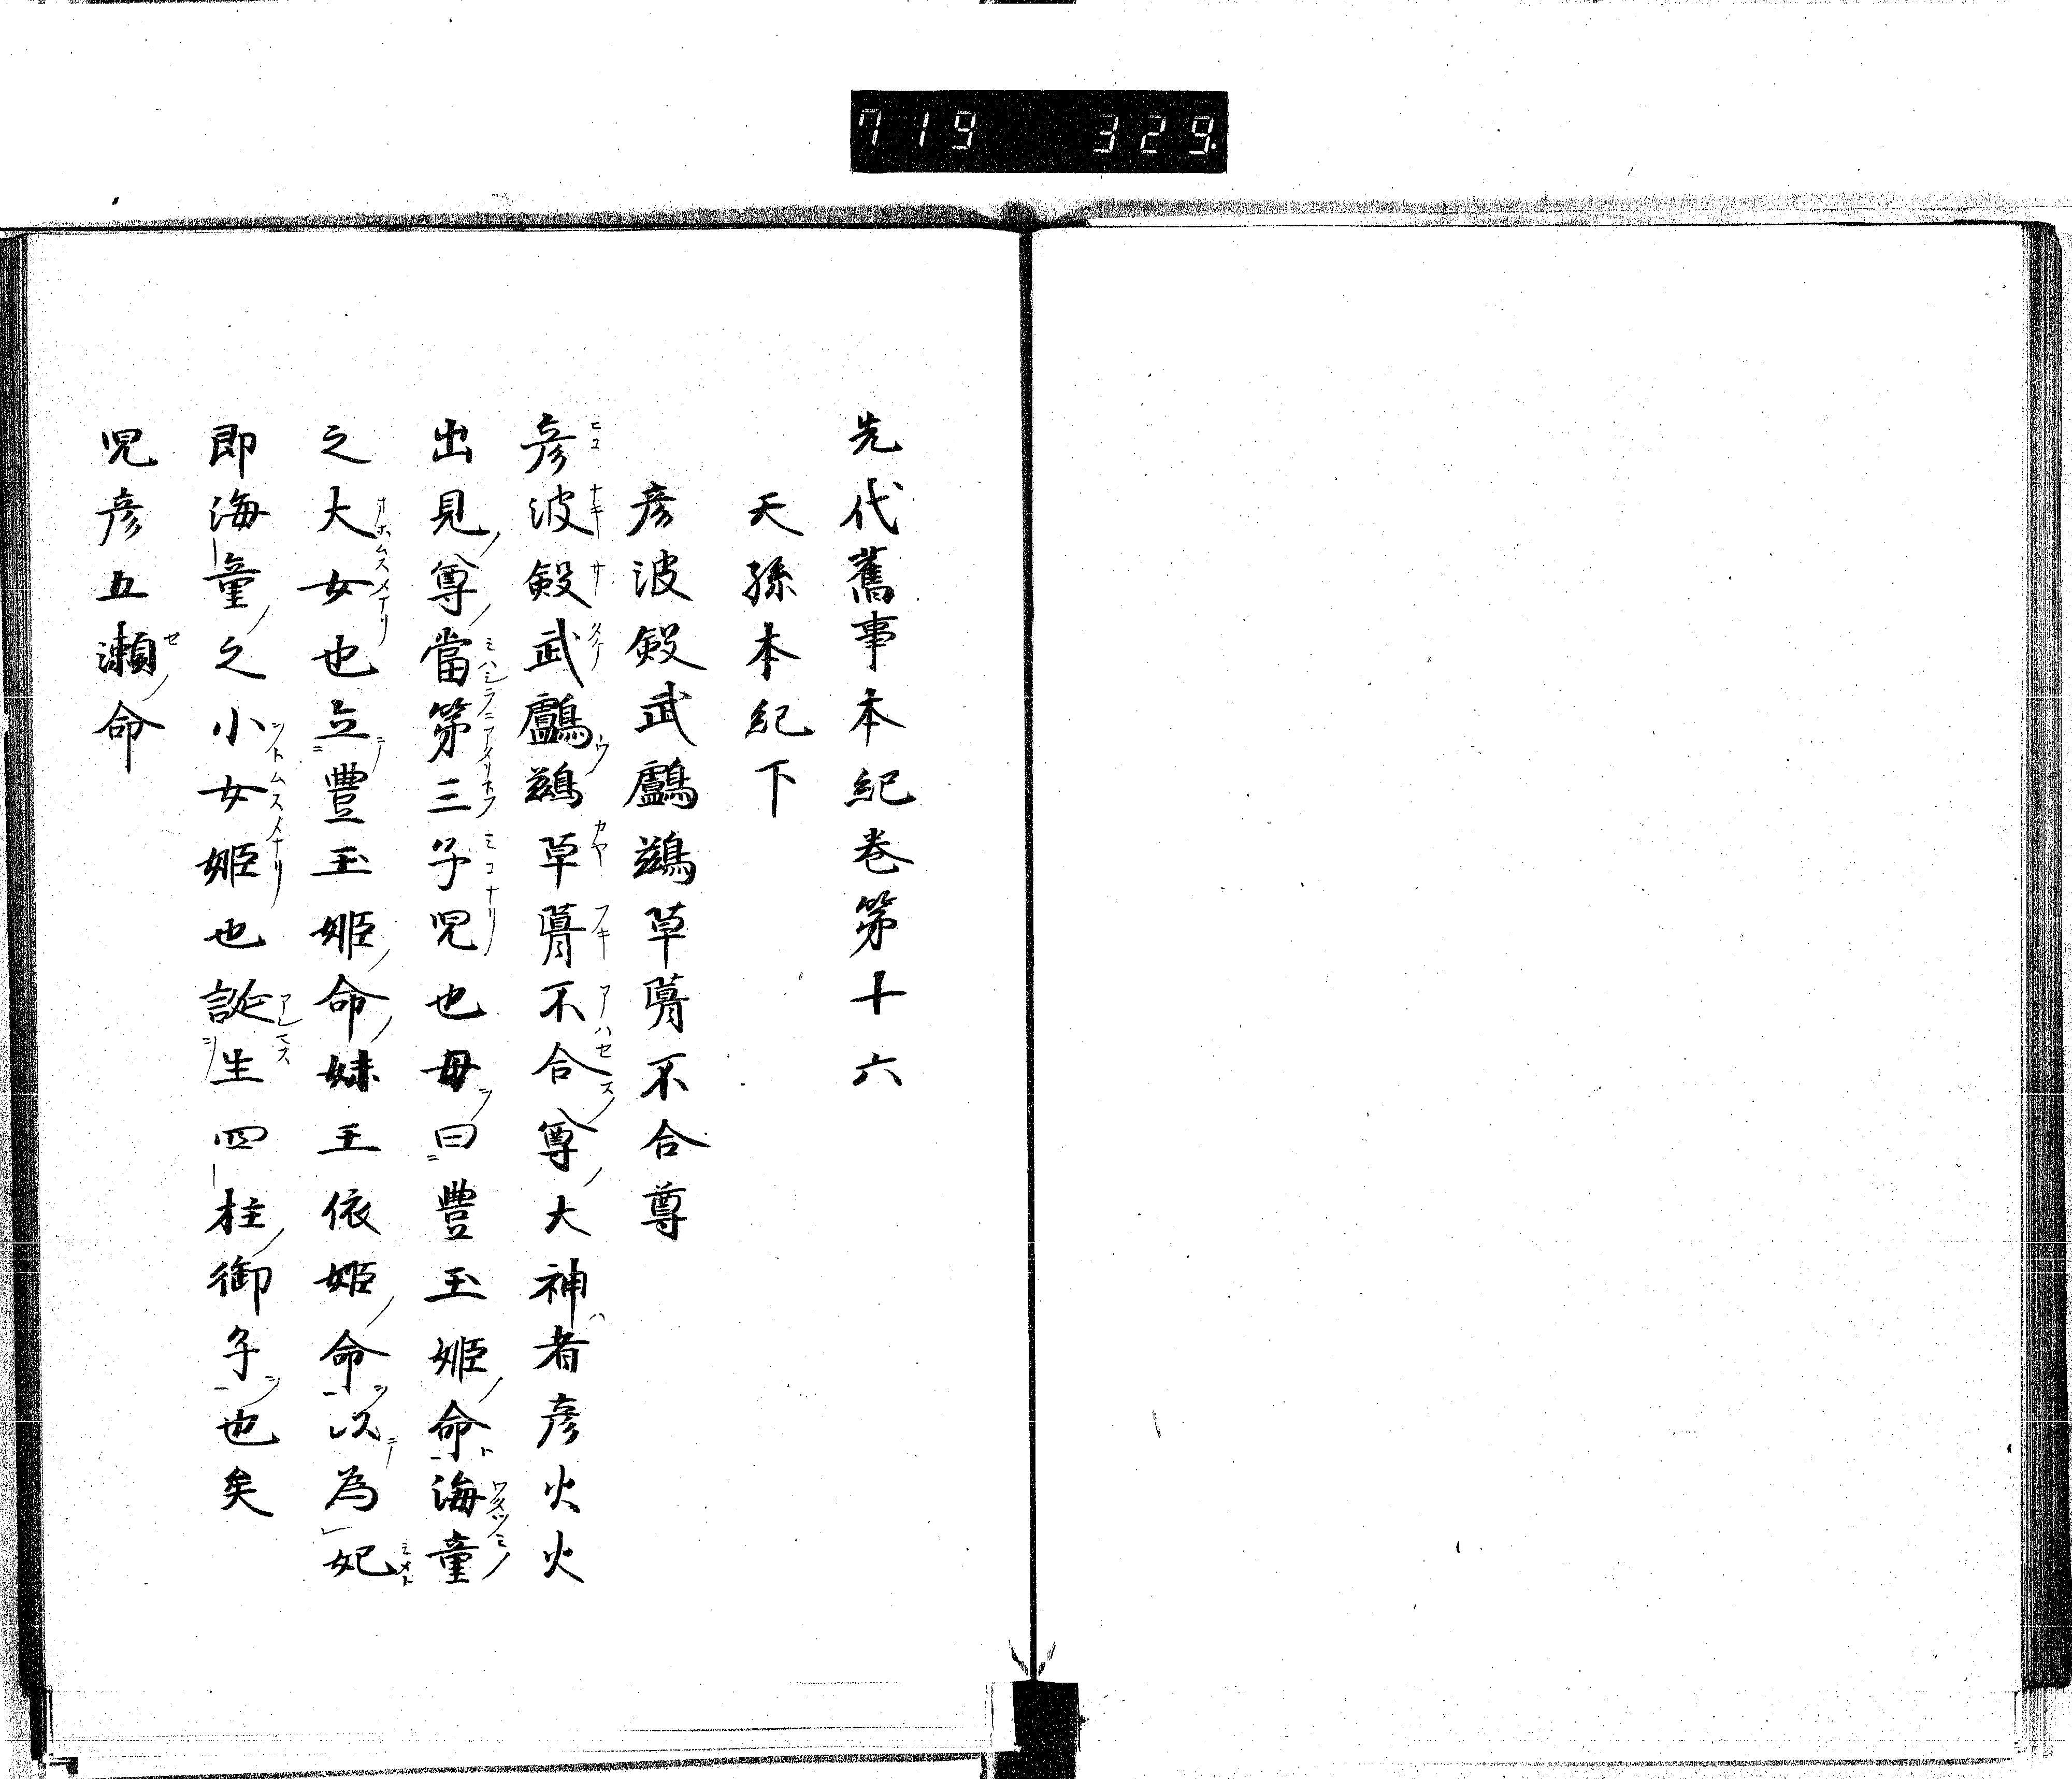 719 329
先代舊事本紀卷第十六
天孫本紀下
彦波㲅武鸕鷀草葺不合尊
彦波㲅武鸕鷀草葺不合尊大神者彦火火
出見尊當第三子児也母曰豐玉姫命海童
之大女也立豐玉姫命妹玉依姫命以為妃
即海童之小女姫也誕生四柱御子也矣
児彦五瀬命